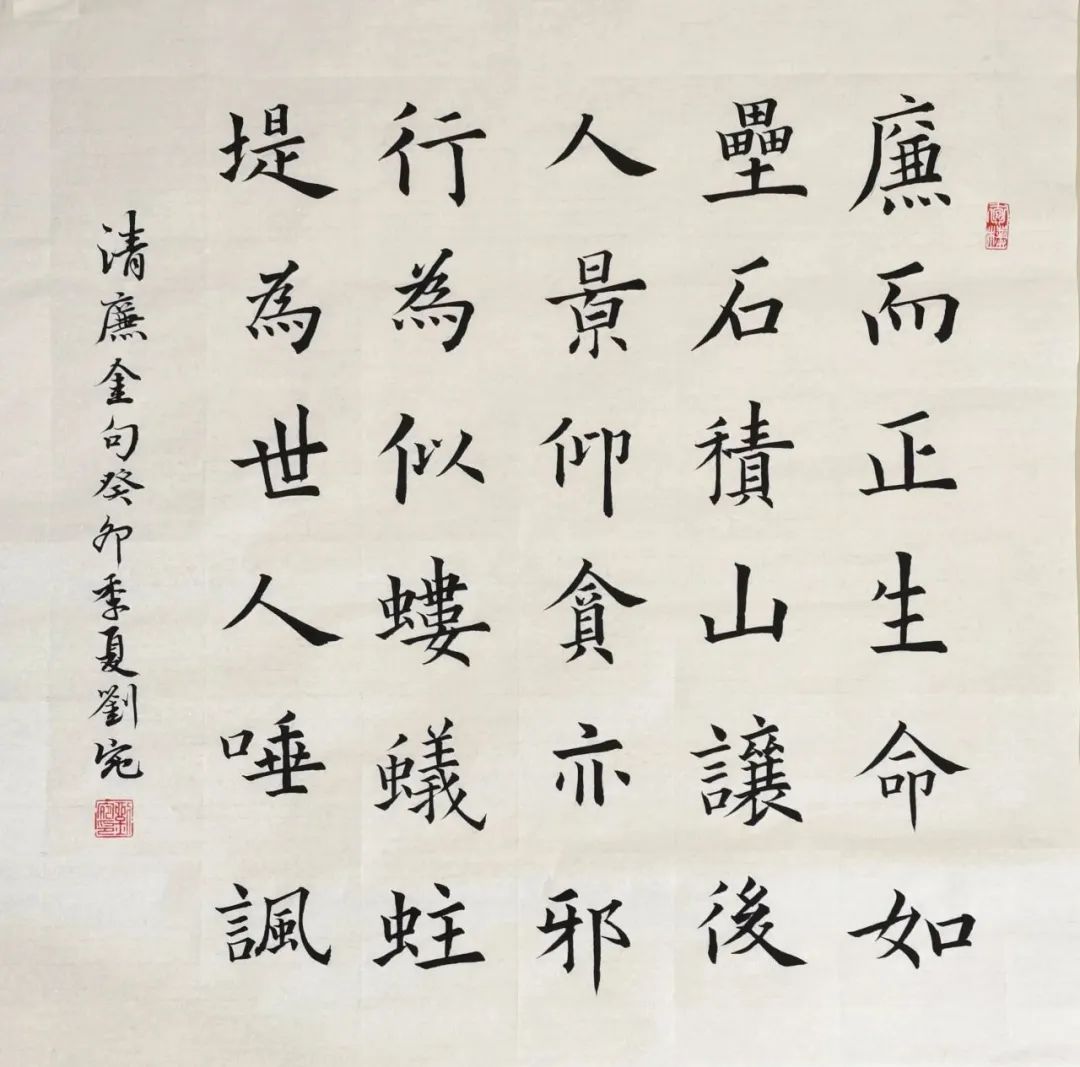 廉而正生命如
壘石積山讓後
人景仰貪亦邪
行為似螻蟻蛀
堤為世人唾諷
清廉金句癸卯季夏劉宛